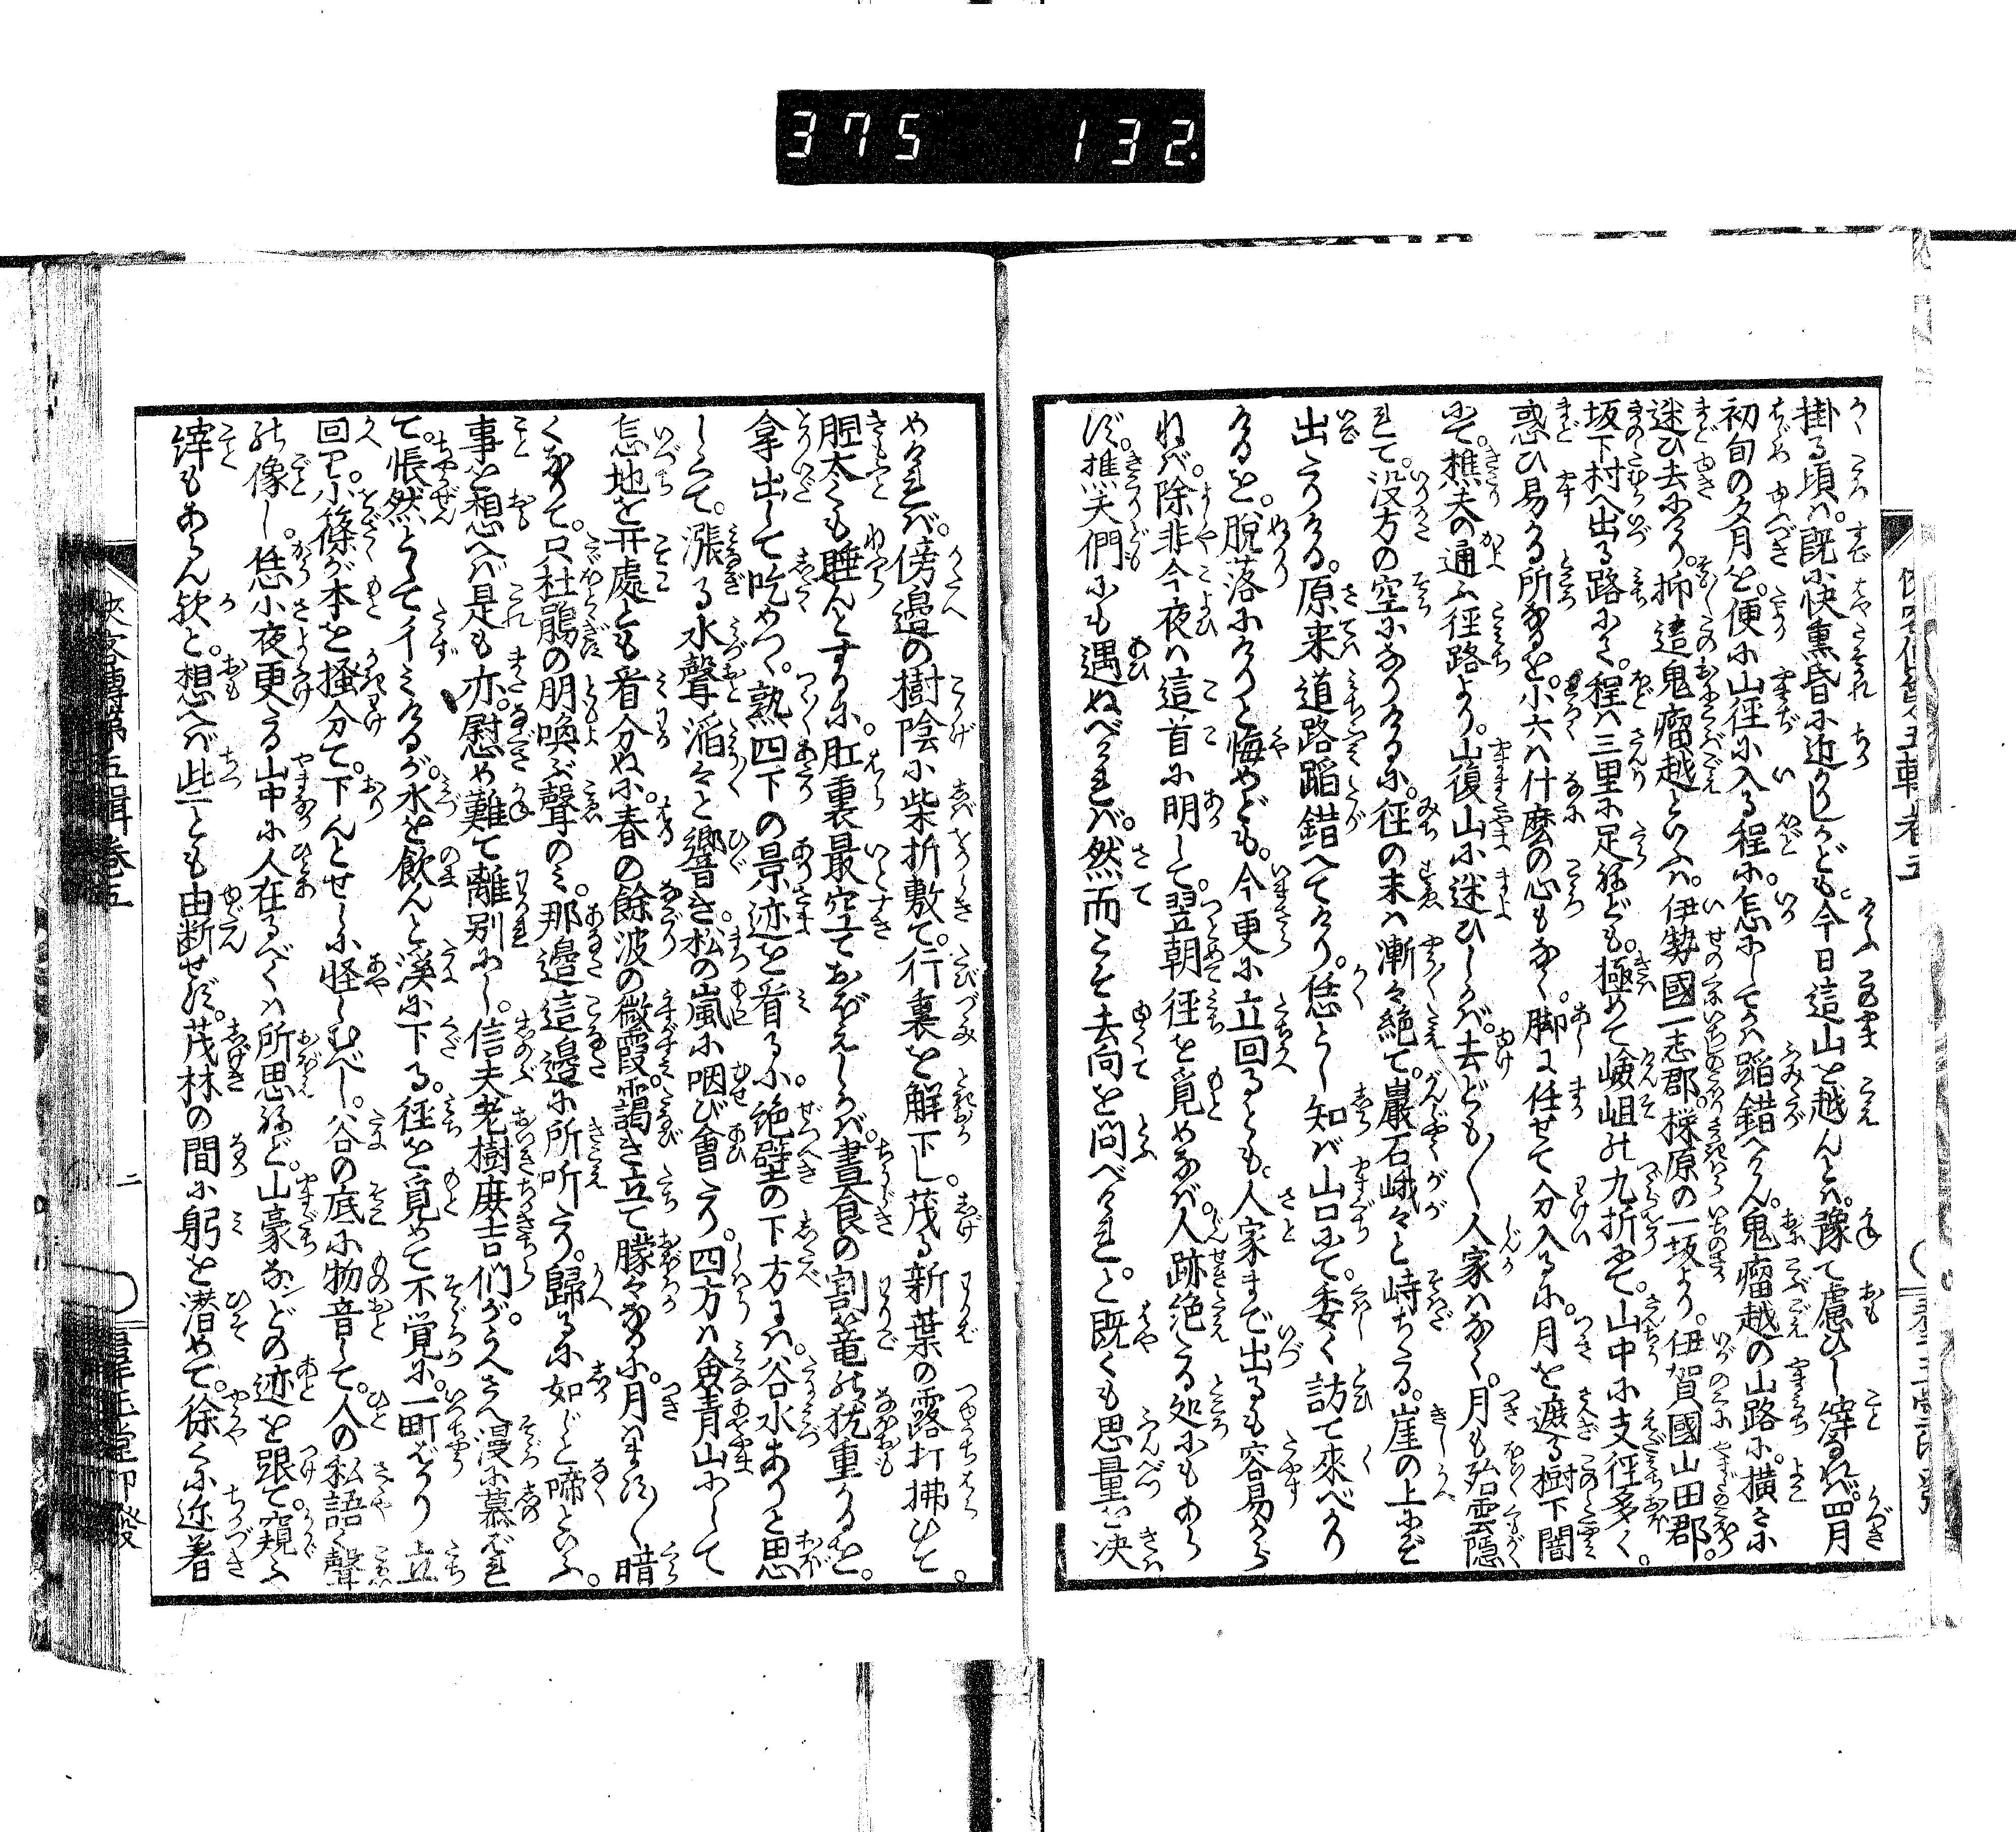 375 132.
掛る頃は。既に快熏昏に近かりしかども。今日這山を越んとは。豫て慮ひし縡なれば。四月
初旬の夕月を。便に山徑に入る程に。怎にしてかは蹈錯へけん。鬼瘤越の山路に。横さに
迷ひ去にけり。抑這鬼瘤越といふは。伊勢國一志郡。樑原の一坂より。伊賀國山田郡。
坂下村へ出る路にて。程は三里に足ねども。極めて嶮岨の九折にて。山中に支徑多く。
惑ひ易かる所なるを。小六は什麼の心もなく。脚に任せて分入るに。月を遮る樹下闇
にて。樵夫の通ふ徑路より。山復山に迷ひしかば。去ども〱人家はなく。月も殆雲隱
れて。没方の空になりけるに。徑の末は漸々絶て。巖石峨々と峙ちたる。崖の上にぞ
出たりける。原来道路蹈錯へてけり。恁とし知ば山口にて。委く訪て來べかり
けるを。脱落にけりと悔やども。今更に立回るとも。人家まで出るも容易から
ねば。除非今夜は這首に明して。翌朝徑を覓めなば。人跡絶たる処にもあら
ず。樵夫們にも遇ぬべければ。然而こそ去向を問べけれ。と既くも思量を决
めければ。傍邉の樹陰に柴折敷て。行裹を解下し。茂る新葉の露打拂ひて。
膽太くも睡んとするに。肚裏最空ておぼえしかば。晝食の割篭の猶重かるを。
拿出して吃めつゝ。熟四下の景迹を看るに。絶壁の下方には。谷水ありと思
しくて。漲る水聲滔々と響き。松の嵐に咽び會たり。四方は僉青山にして
怎地を其處とも看分ぬに。春の餘波の微霞。靄き立て朦々なるに。月はます〱暗
くなりて。只杜鵑の朋喚ぶ聲のみ。那邉這邉に所听たり。歸るに如じと啼といふ。
事を想へば是も亦。慰め難て離別にし。信夫老樹庶吉們がうへさへ漫に慕ばれ
て。悵然として彳みけるが。水を飲んと溪に下る。徑を覓めて不覚に。一町ばかり立
回り。小篠が本を掻分て。下んとせしに怪しむべし。谷の底に物音して。人の私語く聲
の像し。恁小夜更たる山中に人在るべくは所思ねど。山豪などの迹を跟て。窺ふ
縡もあらん欤と。想へば些とも由断せず。茂林の間に躬を潜めて。徐々に近着
俠客傳第五輯卷五
二